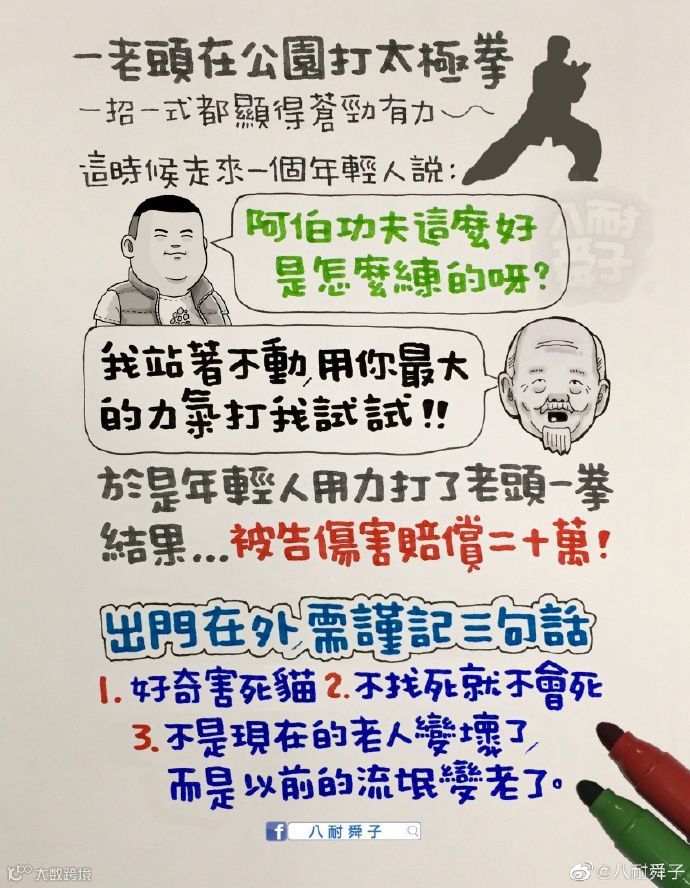 一老頭在公園打太極拳
一招一式都顯得蒼勁有力～
這時候走來一個年輕人説：
八耐
舜子
阿伯功夫這麼好
是怎麼練的呀?
我站著不動,用你最大
的力氣打我試試!!
於是年輕人用力打了老頭一拳
結果...被告傷害賠償二十萬!
出門在外,需謹記三句話
1.好奇害死貓2.不找死就不會死
3.不是現在的老人變壞了,
而是以前的流氓變老了。
f 八耐舜子
大数跨境
@八耐舜子